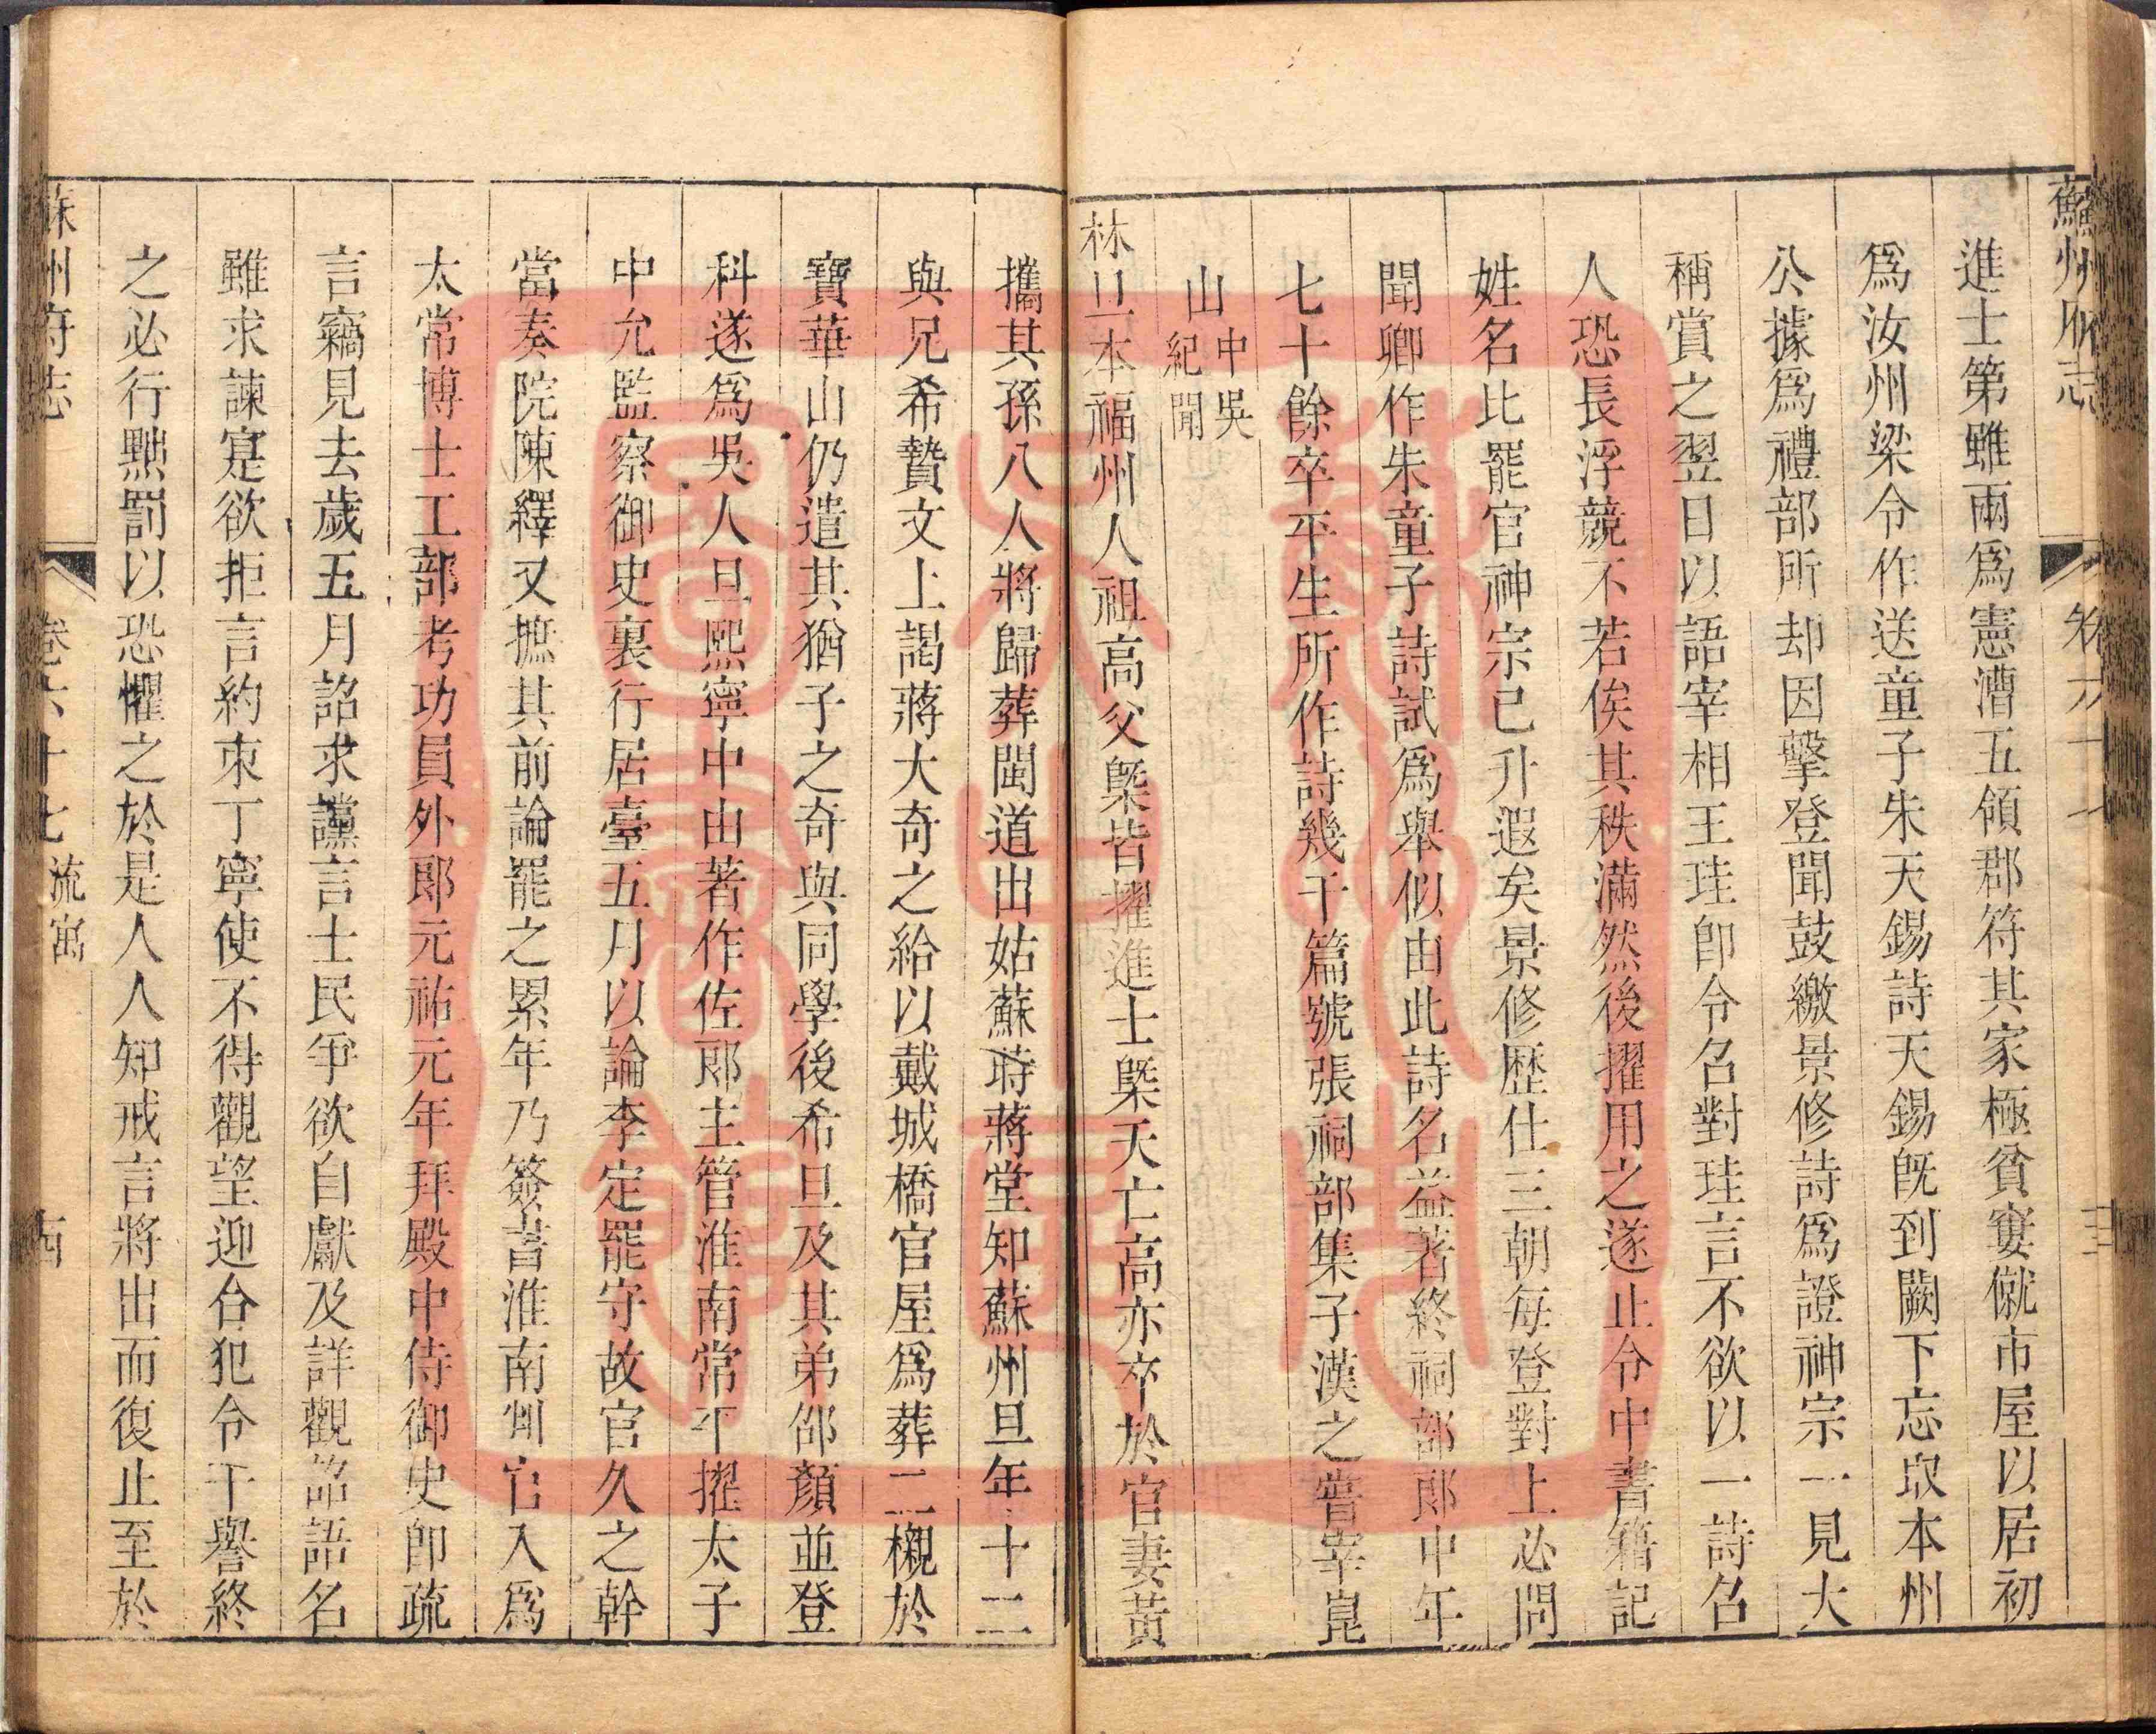 蘇州府志
進士第雖兩爲憲漕五領郡符其家極貧窶僦市屋以居初
爲汝州梁令作送童子朱天錫詩天錫旣到闕下忘取本州
公據爲禮部所却因擊登聞鼓繳景修詩爲證神宗一見大
稱賞之翌日以語宰相王珪卽令召對珪言不欲以一詩召
人恐長浮競不若俟其秩滿然後擢用之遂止令中書籍記
姓名比罷官神宗已升遐矣景修歷仕三朝每登對上必問
聞卿作朱童子詩試爲舉似由此詩名益著終祠部郎中年
七十餘卒平生所作詩幾千篇號張祠部集子漢之嘗宰崑
山
中吳
紀聞
林旦本福州人祖高父槩皆擢進士槩夭亡高亦卒於官妻黃
攜其孫八人將歸葬閩道出姑蘇時蔣堂知蘇州旦年十二
與兄希贄文上謁蔣大奇之給以戴城橋官屋爲葬二櫬於
寶華山仍遣其猶子之奇與同學後希旦及其弟邵顏並登
科遂爲吳人旦熙寧中由著作佐郎主管淮南常平擢太子
中允監察御史裏行居臺五月以論李定罷守故官久之幹
當奏院陳繹又摭其前論罷之累年乃簽書淮南州官入爲
太常博士工部考功員外郎元祐元年拜殿中侍御史卽疏
言竊見去歲五月詔求讜言士民爭欲自獻及詳觀詔語名
雖求諫寔欲拒言約束丁寧使不得觀望迎合犯令干譽終
之必行黜罰以恐懼之於是人人知戒言將出而復止至於
蘇州府志
卷六十七
流寓